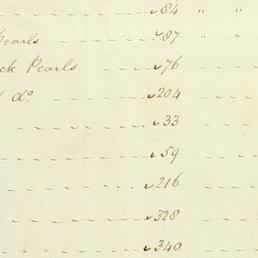 84 " "
Pearls 87 " "
ck Pearls 76
do. 204
33
59
216
328
340